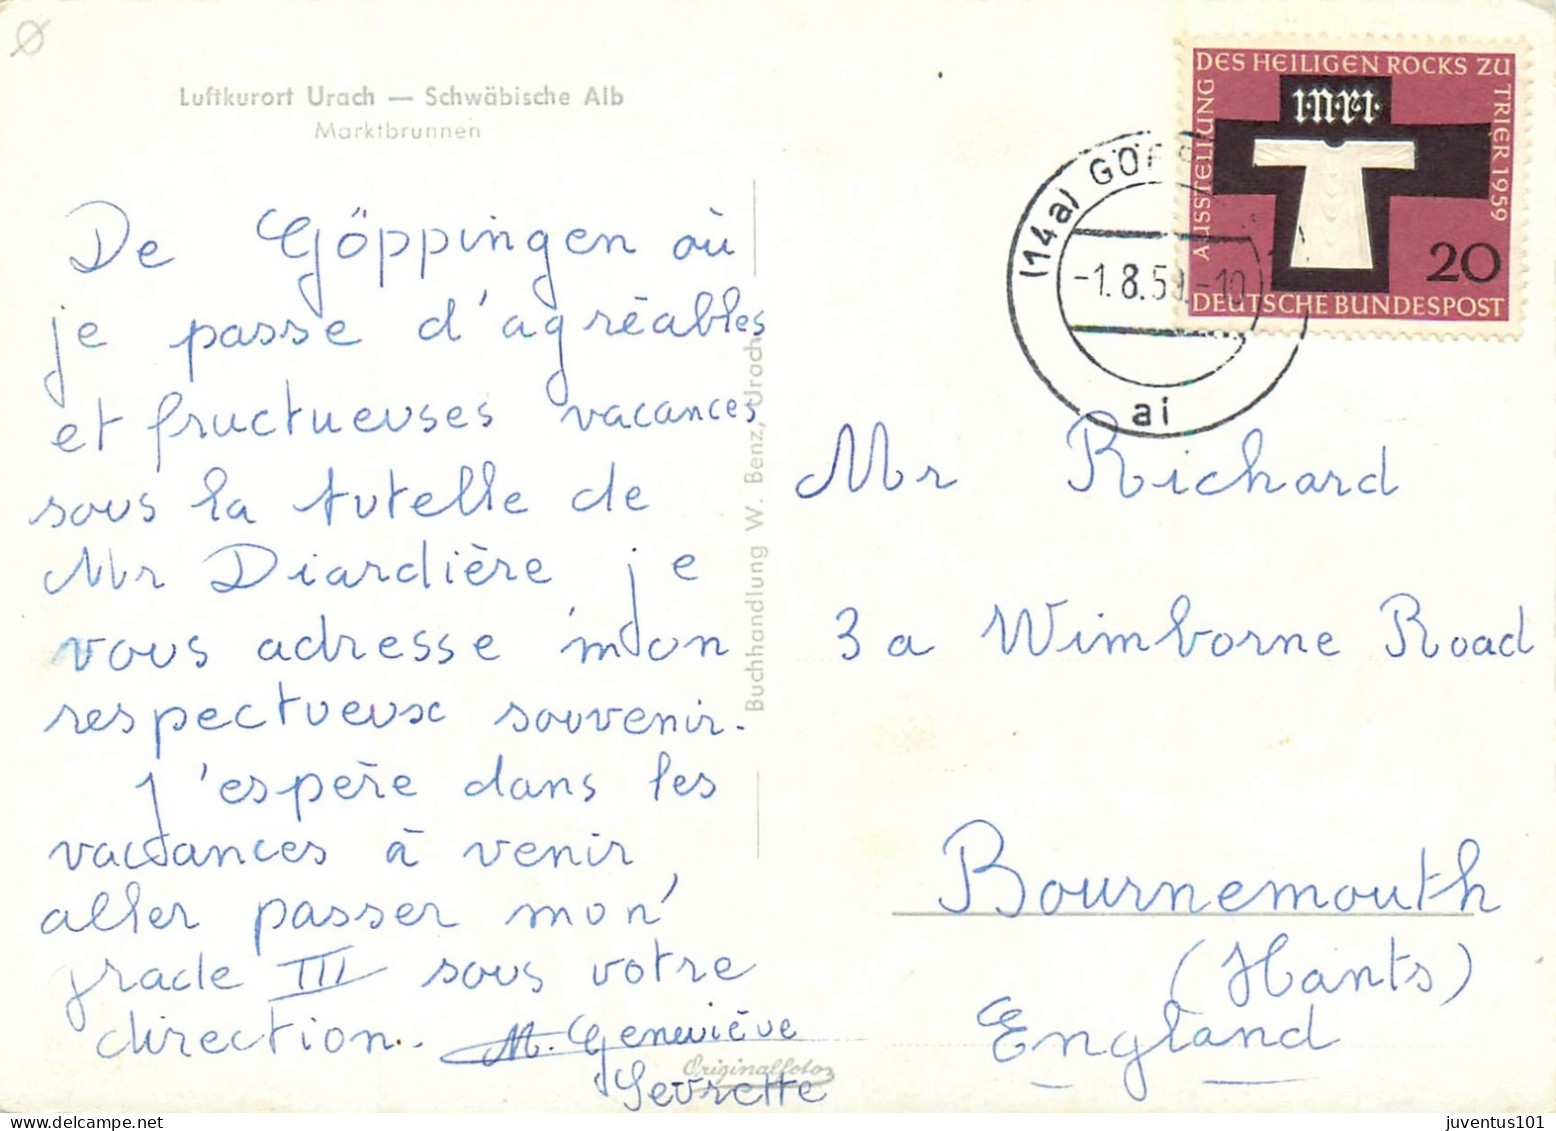 Luftkurort Urach — Schwäbische Alb
Marktbrunnen
De Göppingen où
je passe d'agréables
et fructueuses vacances
sous la tutelle de
Mr Diardière je
vous adresse mon
respectueux souvenir.
j'espère dans les
vacances à venir
aller passer mon
grade III sous votre
direction.
M. Geneviève
Sevrette
Originalfoto
Buchhandlung W. Benz, Urach
AUSSTELLUNG DES HEILIGEN ROCKS ZU TRIER 1959
I·N·R·I·
20
DEUTSCHE BUNDESPOST
(14a) GÖPP
-1.8.59.-10
ai
Mr Richard
3a Wimborne Road
Bournemouth
(Hants)
England
juventus101